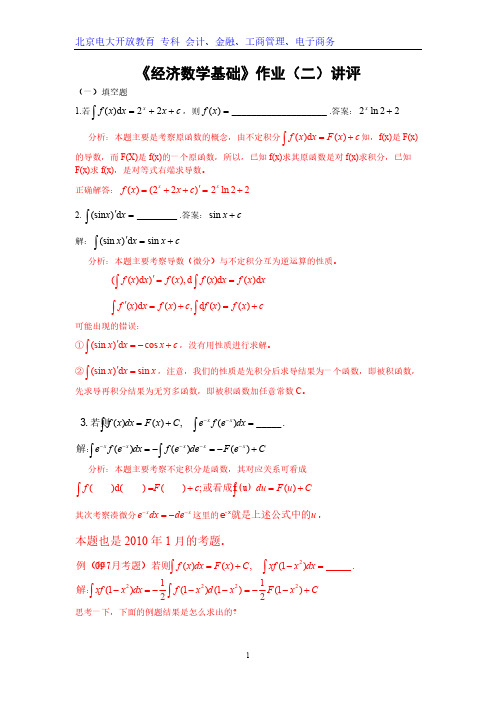 北京电大开放教育 专科 会计、金融、工商管理、电子商务
《经济数学基础》作业（二）讲评
（一）填空题
1.若∫f(x)dx = 2^x + 2x + c，则 f(x) = ___________________ .答案：2^x ln 2 + 2
分析：本题主要是考察原函数的概念，由不定积分∫f(x)dx = F(x) + c 知，f(x)是 F(x)
的导数，而 F(X)是 f(x)的一个原函数，所以，已知 f(x)求其原函数是对 f(x)求积分，已知
F(x)求 f(x)，是对等式右端求导数。
正确解答：f(x) = (2^x + 2x + c)′ = 2^x ln 2 + 2
2. ∫(sin x)′dx = ________ .答案：sin x + c
解：∫(sin x)′dx = sin x + c
分析：本题主要考察导数（微分）与不定积分互为逆运算的性质。
(∫f(x)dx)′ = f(x), d∫f(x)dx = f(x)dx
∫f′(x)dx = f(x) + c, ∫df(x) = f(x) + c
可能出现的错误：
①∫(sin x)′dx = − cos x + c，没有用性质进行求解。
②∫(sin x)′dx = sin x，注意，我们的性质是先积分后求导结果为一个函数，即被积函数，
先求导再积分结果为无穷多函数，即被积函数加任意常数 C。
3. 若∫f(x)dx = F(x) + C, 则∫e^{−x} f(e^{−x})dx = _____.
解：∫e^{−x} f(e^{−x})dx = −∫f(e^{−x})de^{−x} = −F(e^{−x}) + C
分析：本题主要考察不定积分是函数，其对应关系可看成
∫f( )d( ) =F( ) + c;或看成∫f(u) du = F(u) + C
其次考察凑微分 e^{−x}dx = −de^{−x} 这里的 e^{−x}就是上述公式中的u．
本题也是 2010 年 1 月的考题．
例（09.7月考题）若∫f(x)dx = F(x) + C, 则∫xf(1 − x²)dx = _____.
解：∫xf(1 − x²)dx = −1/2 ∫f(1 − x²)d(1 − x²) = −1/2 F(1 − x²) + C
思考一下，下面的例题结果是怎么求出的？
1